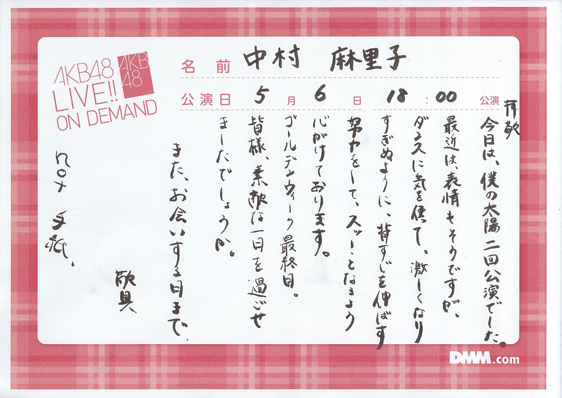 AKB48
LIVE!!
ON DEMAND
AKB
48
名前 中村 麻里子
公演日 5月6日 18:00 公演
拝啓
今日は、僕の太陽二回公演でした。
最近は、表情もそうですが、
ダンスに気を使て、激しくなり
すぎぬように、背すじを伸ばす
努力をして、スッとなるよう
心がけております。
ゴールデンウィーク最終日。
皆様、素敵な一日を過ごせ
ましたでしょうか。
また、お会いする日まで。
敬具
not 手紙.
DMM.com